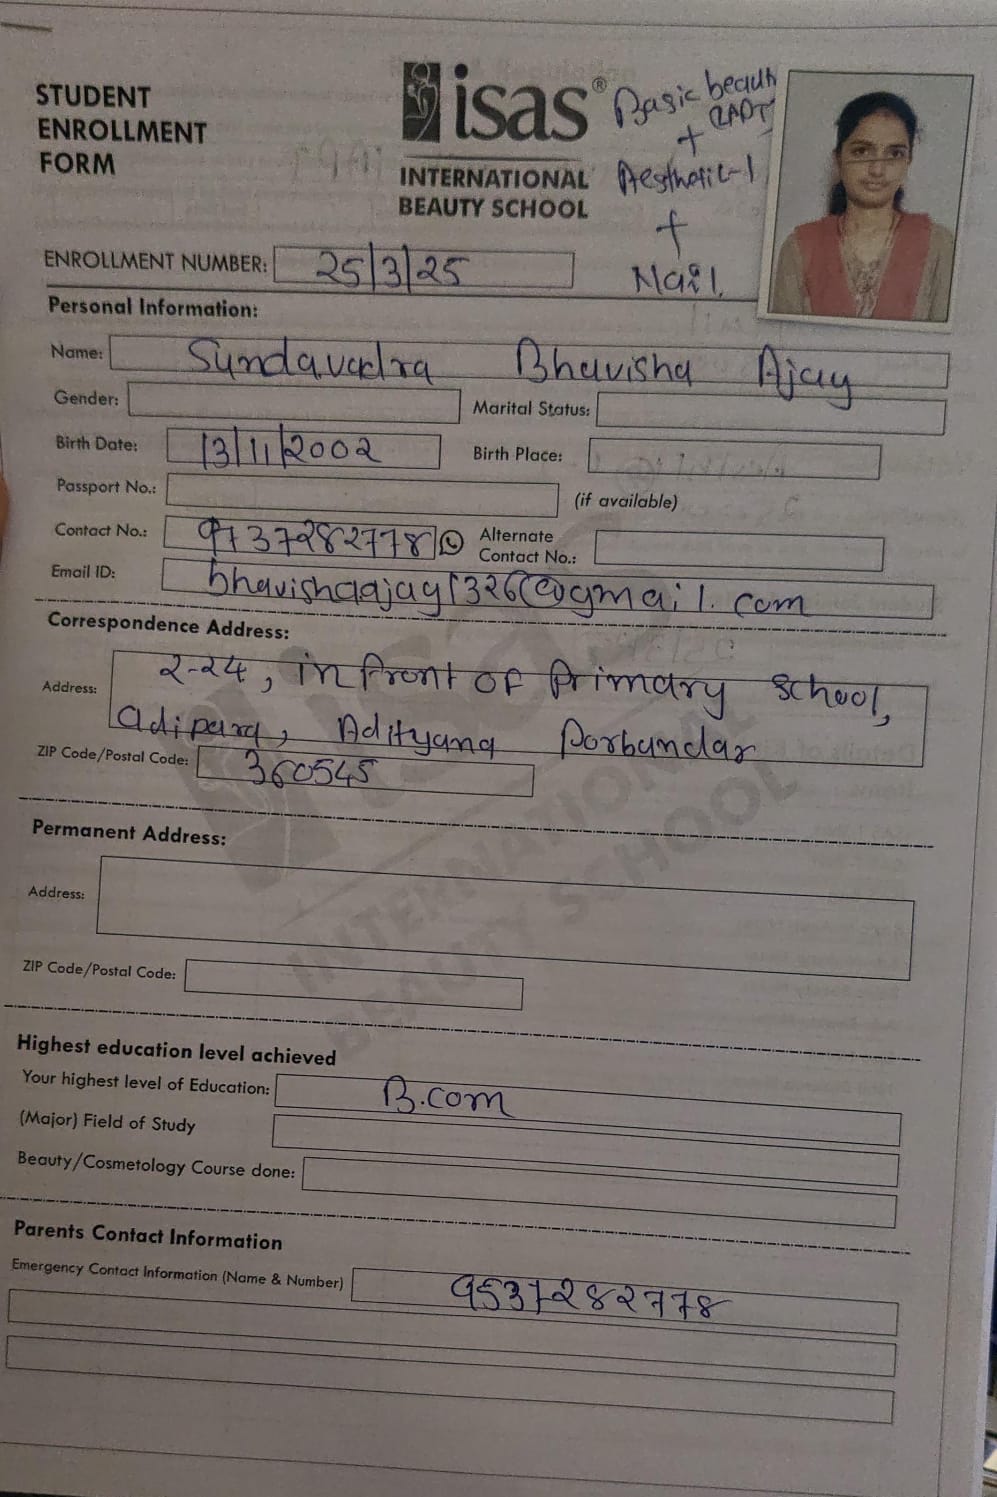 STUDENT
ENROLLMENT
FORM
isas®
INTERNATIONAL
BEAUTY SCHOOL
Basic beauti
+
Aesthetic-1
+
Nail.
ENROLLMENT NUMBER: 25/3/25
Personal Information:
Name: Sundavadra Bhavisha Ajay
Gender: Marital Status:
Birth Date: 13/11/2002 Birth Place:
Passport No.: (if available)
Contact No.: 9737282778 Alternate Contact No.:
Email ID: bhavishaajay1326@gmail.com
Correspondence Address:
Address: 2-24, in front of Primary School,
adipara, Adityana Porbandar
ZIP Code/Postal Code: 360545
Permanent Address:
Address:
ZIP Code/Postal Code:
Highest education level achieved
Your highest level of Education: B.com
(Major) Field of Study
Beauty/Cosmetology Course done:
Parents Contact Information
Emergency Contact Information (Name & Number) 9537282778